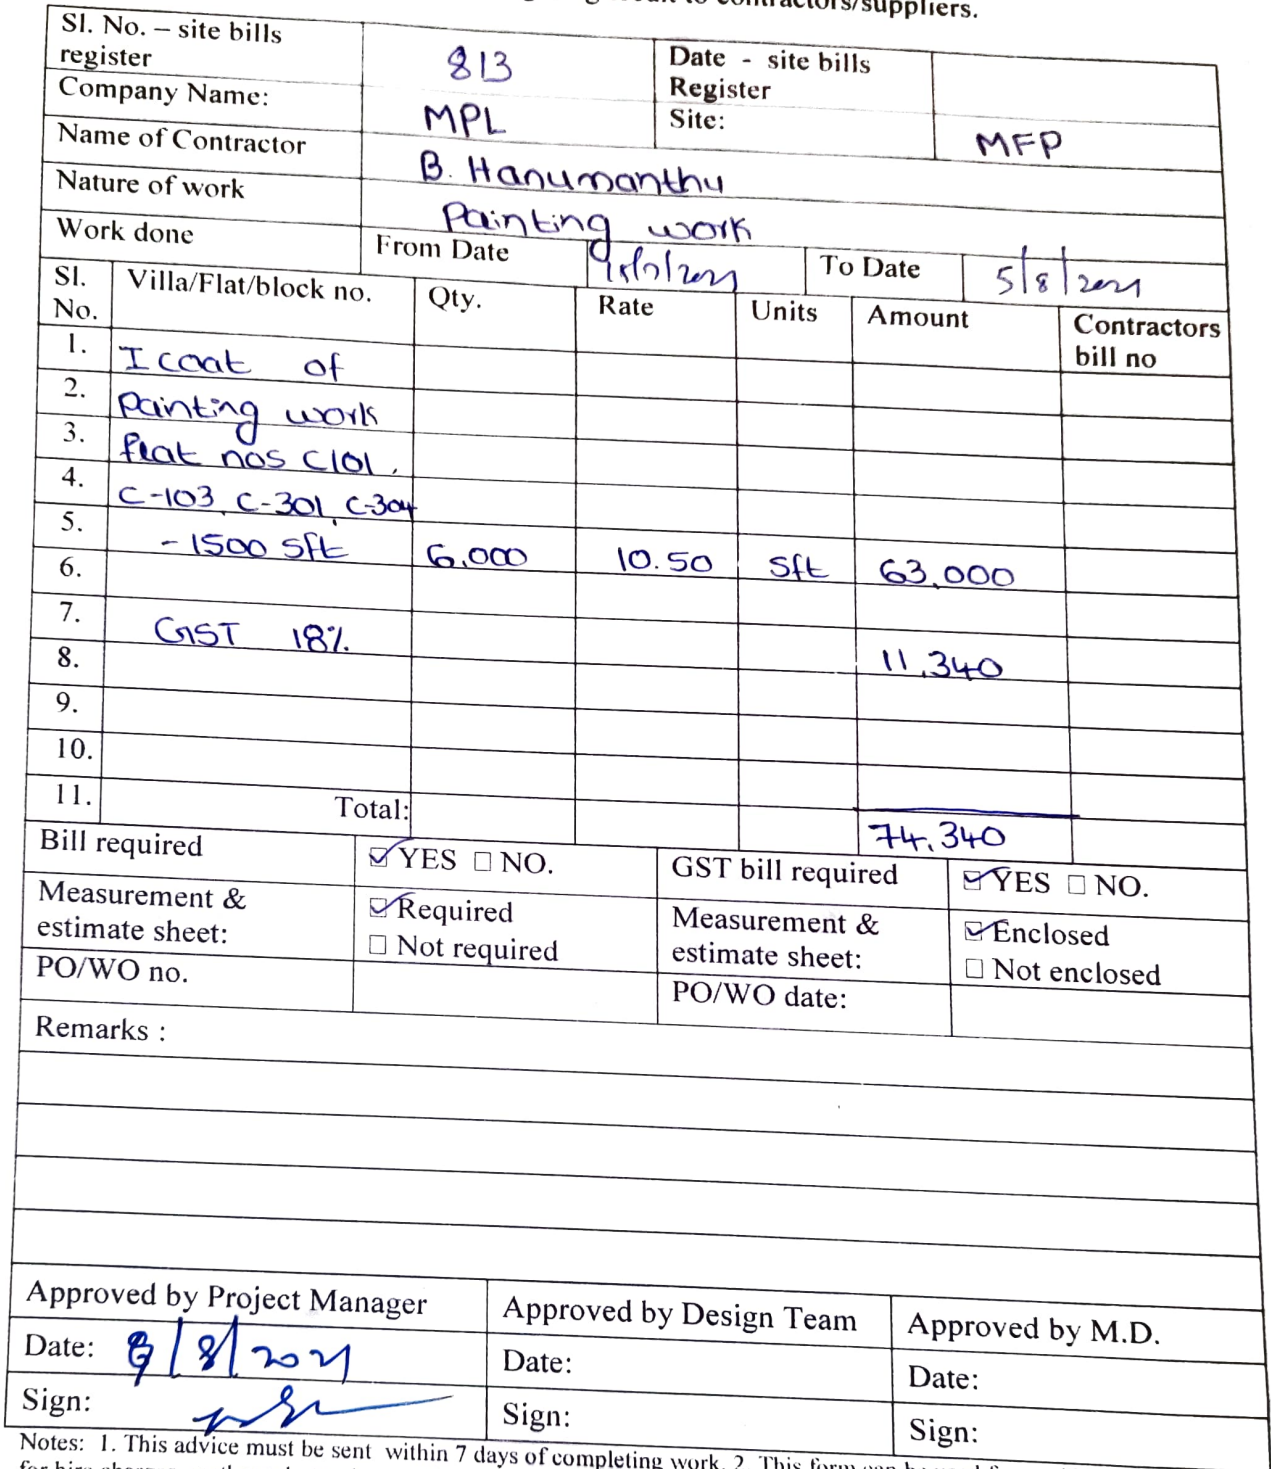 contractors/suppliers.
Sl. No. – site bills register 813 Date - site bills Register
Company Name: MPL Site: MFP
Name of Contractor B. Hanumanthu
Nature of work Painting work
Work done From Date To Date 5/8/2021
Sl. No. Villa/Flat/block no. Qty. Rate Units Amount Contractors bill no
1. I coat of
2. Painting work
3. flat nos C101,
4. C-103, C-301, C-304
5. - 1500 sft 6,000 10.50 sft 63,000
6.
7. GST 18% 11,340
8.
9.
10.
11. Total: 74,340
Bill required YES NO. GST bill required YES NO.
Measurement & estimate sheet: Required Not required Measurement & estimate sheet: Enclosed Not enclosed
PO/WO no. PO/WO date:
Remarks :
Approved by Project Manager Approved by Design Team Approved by M.D.
Date: /8/2021 Date: Date:
Sign: Sign: Sign:
Notes: 1. This advice must be sent within 7 days of completing work. 2. This form can be